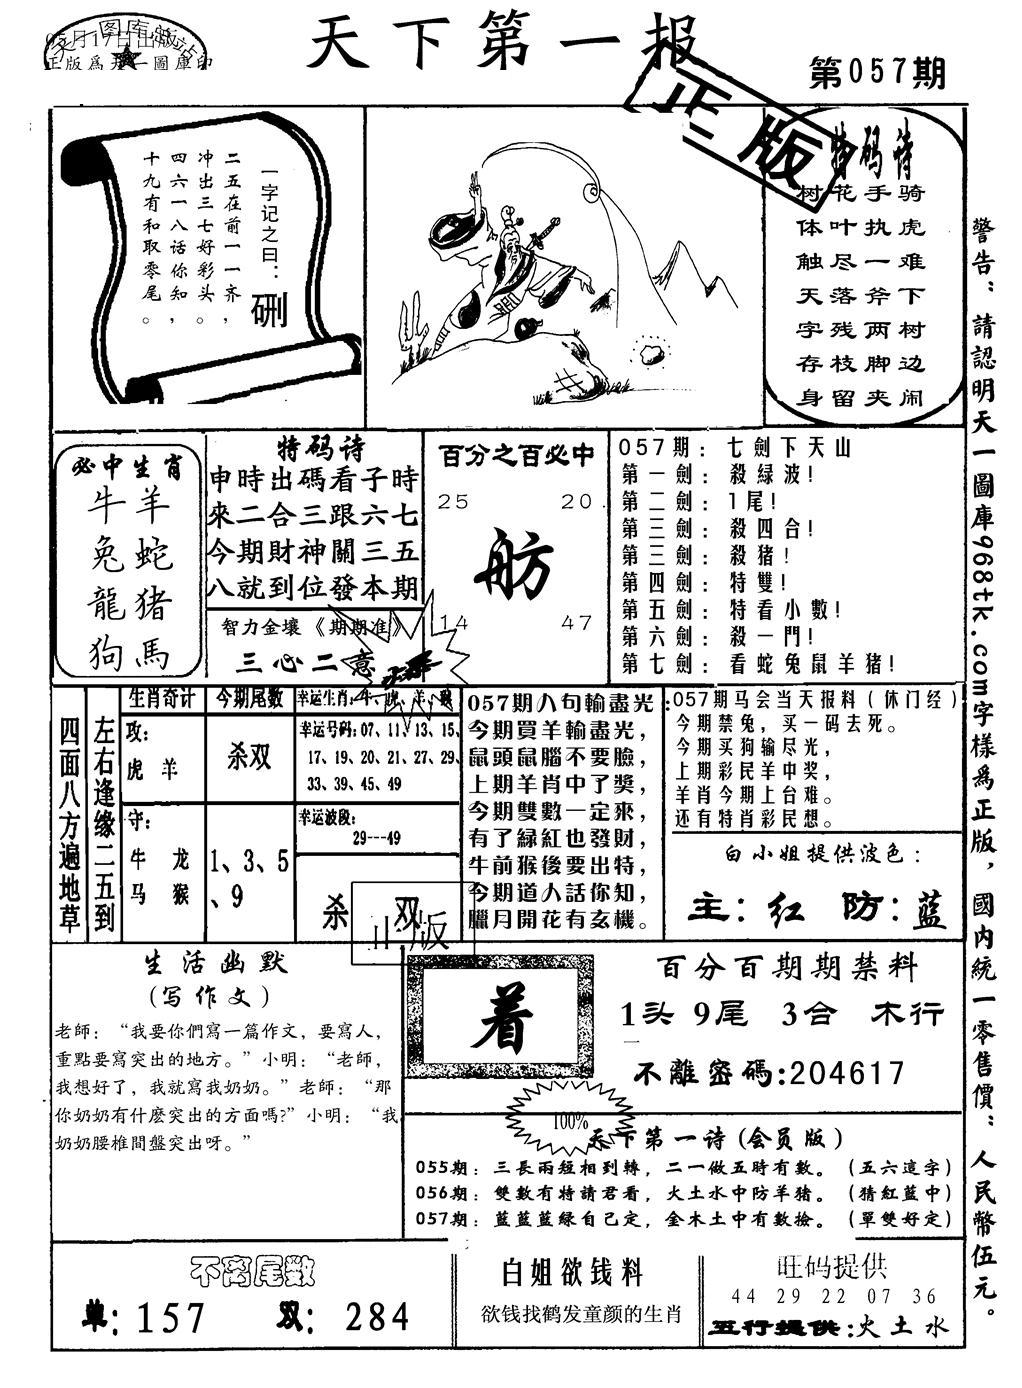 天下第一报
第057期
05月17日出版
正版爲天一圖庫印
正版
一字记之曰：
删
二五在前一一齐，
冲出三七好彩头。
四六一八话你知，
十九有和取零尾。
特码诗
骑虎难下树边闹
手执一斧两脚夹
花叶尽落残枝留
树体触天字存身
警告：請認明天一圖庫968tk.com字樣爲正版，國内統一零售價：人民幣伍元。
必中生肖
牛羊
兔蛇
龍猪
狗馬
特码诗
申時出碼看子時
來二合三跟六七
今期財神關三五
八就到位發本期
智力金壤《期期准》
三心二意
百分之百必中
25 20
舫
14 47
057期：七劍下天山
第一劍：殺緑波!
第二劍：1尾!
第三劍：殺四合!
第三劍：殺猪!
第四劍：特雙!
第五劍：特看小數!
第六劍：殺一門!
第七劍：看蛇兔鼠羊猪!
四面八方遍地草
左右逢缘二五到
生肖奇计
攻：
虎 羊
守：
牛 龙
马 猴
今期尾数
杀双
1、3、5
、9
幸运生肖：牛、虎、羊、猴
幸运号码：07、11、13、15、
17、19、20、21、27、29、
33、39、45、49
幸运波段：
29---49
杀 双
正版
057期八句輸盡光：
今期買羊輸盡光，
鼠頭鼠腦不要臉，
上期羊肖中了獎，
今期雙數一定來，
有了緑紅也發財，
牛前猴後要出特，
今期道人話你知，
臘月開花有玄機。
057期马会当天报料（休门经）
今期禁兔，买一码去死。
今期买狗输尽光，
上期彩民羊中奖，
羊肖今期上台难。
还有特肖彩民想。
白小姐提供波色：
主：红 防：蓝
生活幽默
(写作文)
老師：“我要你們寫一篇作文，要寫人，
重點要寫突出的地方。”小明：“老師，
我想好了，我就寫我奶奶。”老師：“那
你奶奶有什麽突出的方面嗎?”小明：“我
奶奶腰椎間盤突出呀。”
着
百分百期期禁料
1头 9尾 3合 木行
不離密碼:204617
100%
天下第一诗(会员版)
055期：三長兩短相到轉，二一做五時有數。（五六這字）
056期：雙數有特請君看，火土水中防羊猪。（猜紅藍中）
057期：藍藍藍緑自己定，金木土中有數撿。（單雙好定）
不离尾数
单：157 双：284
白姐欲钱料
欲钱找鹤发童颜的生肖
旺码提供
44 29 22 07 36
五行提供:火土水